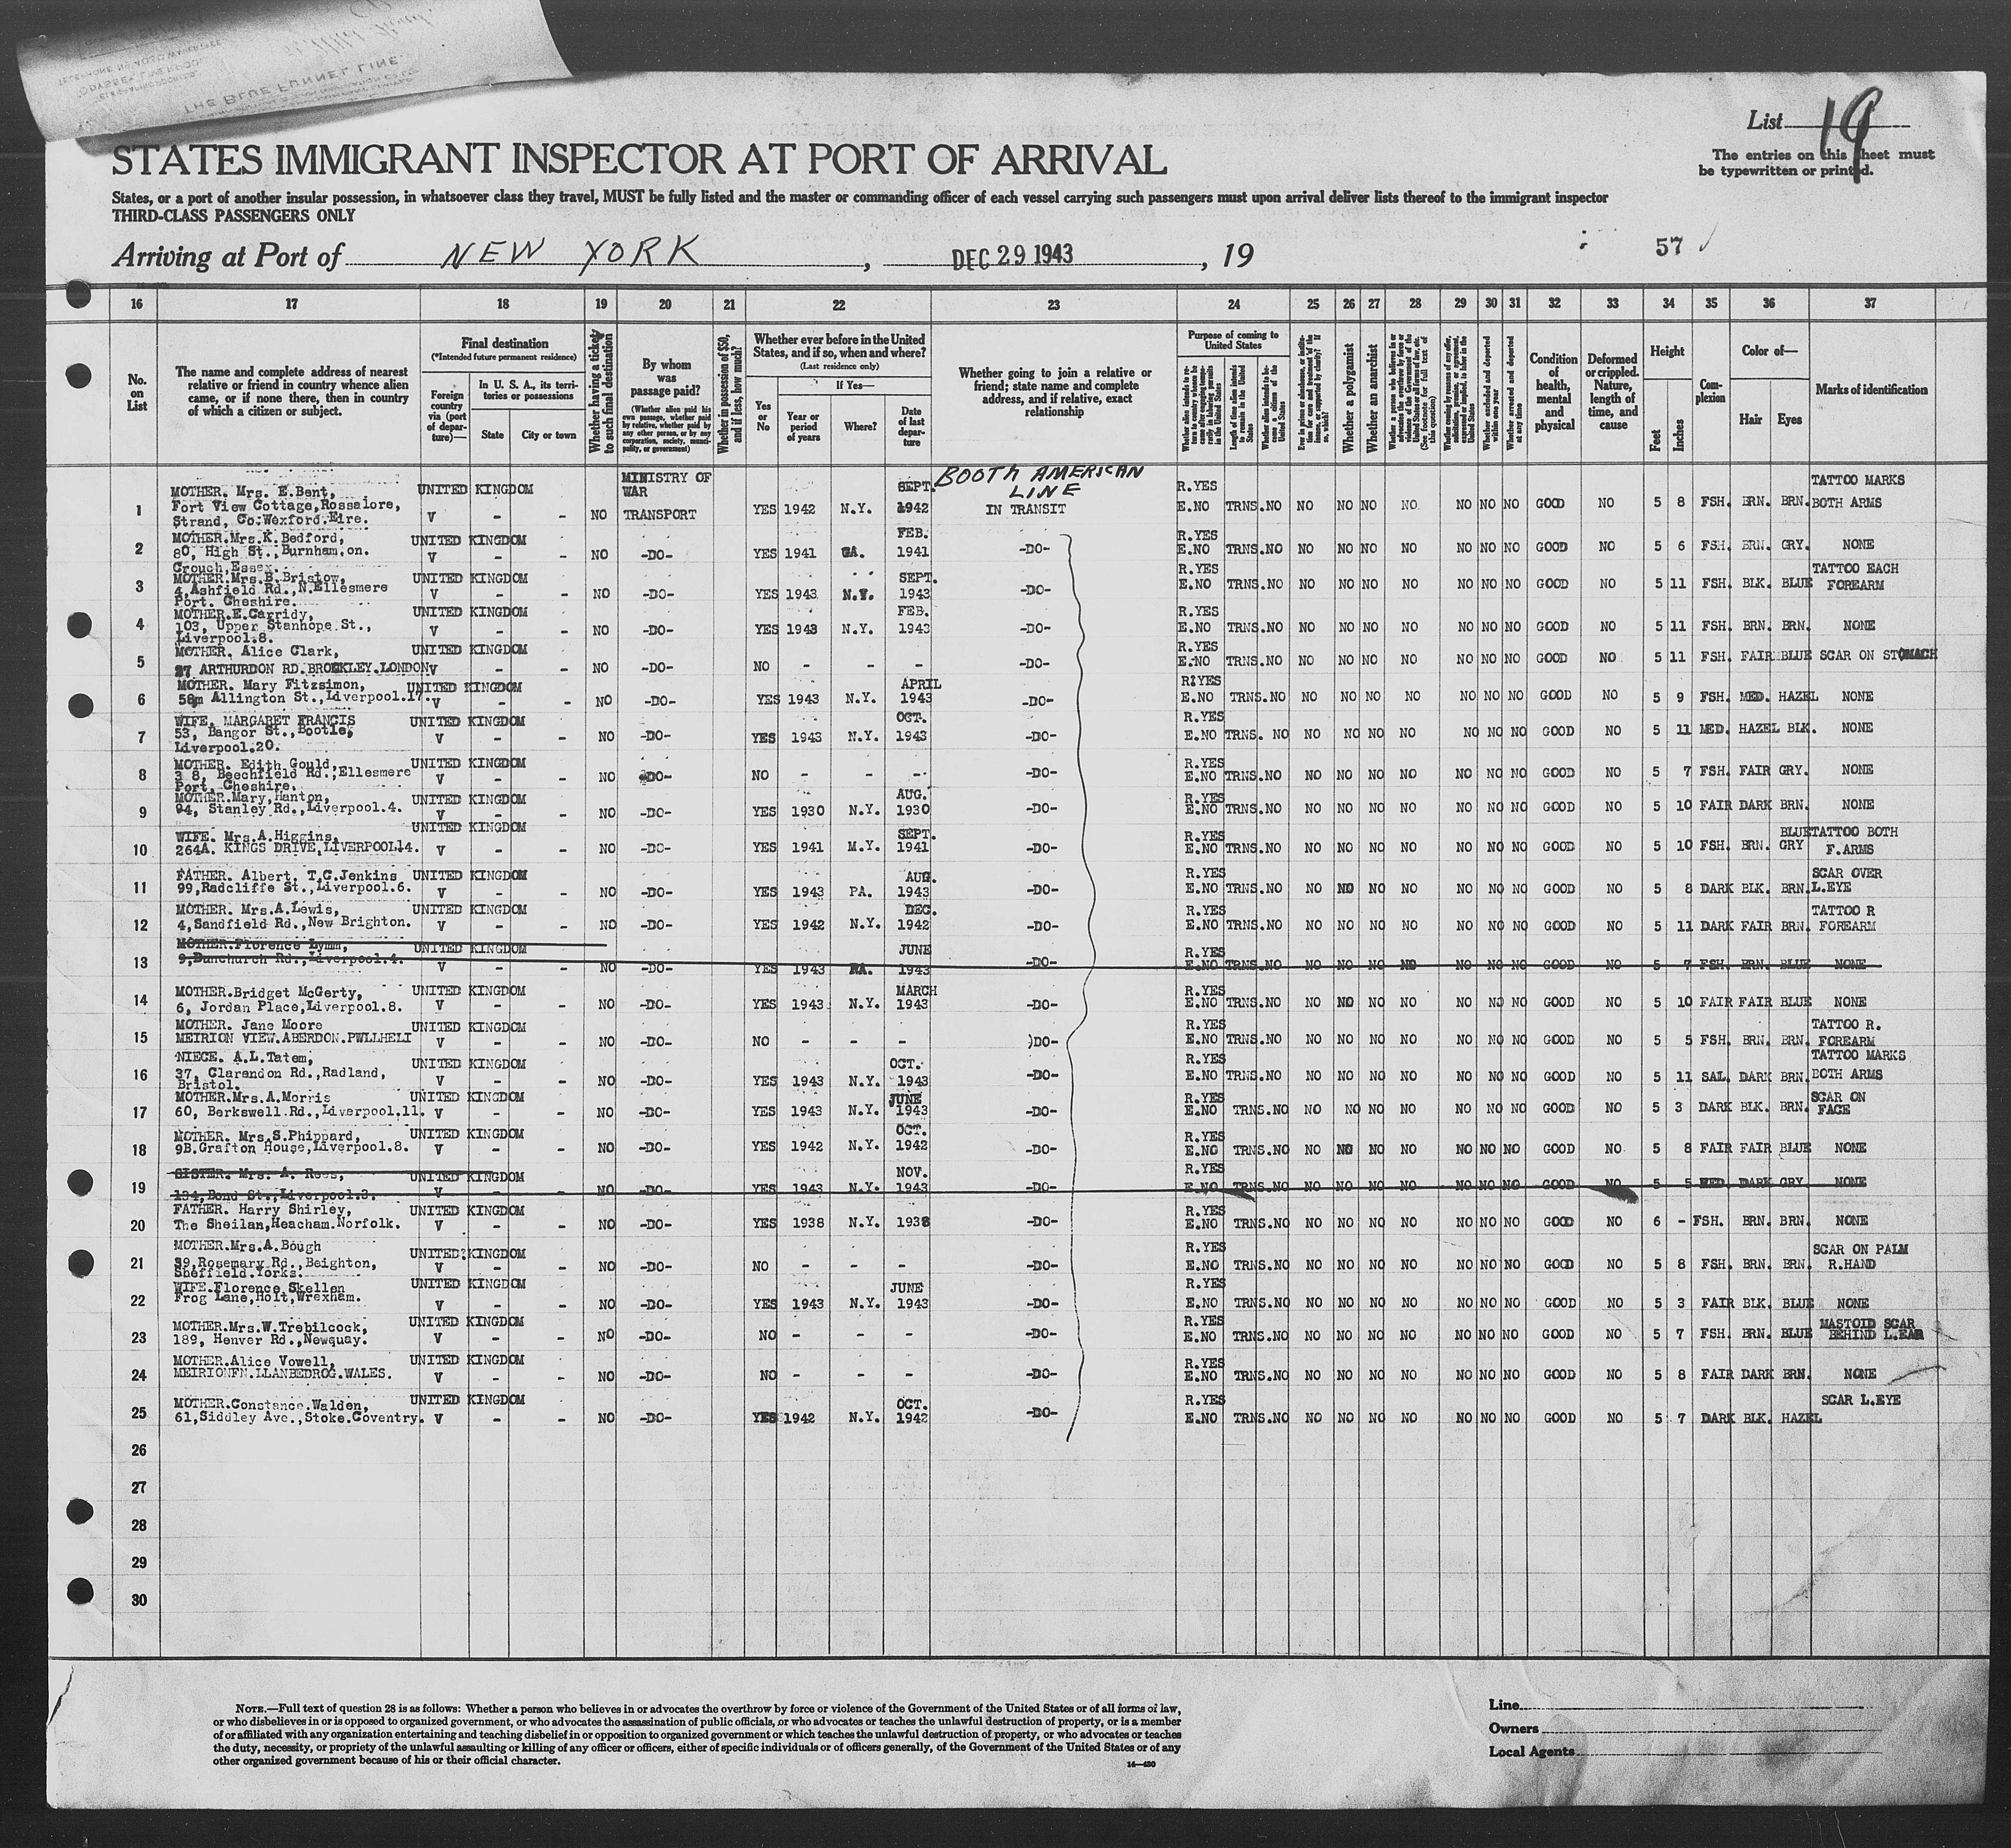 THE BLUE FUNNEL LINE
List 19
The entries on this sheet must
be typewritten or printed.
STATES IMMIGRANT INSPECTOR AT PORT OF ARRIVAL
States, or a port of another insular possession, in whatsoever class they travel, MUST be fully listed and the master or commanding officer of each vessel carrying such passengers must upon arrival deliver lists thereof to the immigrant inspector
THIRD-CLASS PASSENGERS ONLY
Arriving at Port of NEW YORK, DEC 29 1943, 19
57
16 17 18 19 20 21 22 23 24 25 26 27 28 29 30 31 32 33 34 35 36 37
No. on List
The name and complete address of nearest relative or friend in country whence alien came, or if none there, then in country of which a citizen or subject.
Final destination
(*Intended future permanent residence)
Foreign country via (port of departure)—
In U. S. A., its territories or possessions
State
City or town
Whether having a ticket to such final destination
By whom was passage paid?
(Whether alien paid his own passage, whether paid by relative, whether paid by any other person, or by any corporation, society, municipality, or government)
Whether in possession of $50, and if less, how much?
Whether ever before in the United States, and if so, when and where?
(Last residence only)
Yes or No
If Yes—
Year or period of years
Where?
Date of last departure
Whether going to join a relative or friend; state name and complete address, and if relative, exact relationship
Purpose of coming to United States
Length of time alien intends to remain in the United States
Whether alien intends to become a citizen of the United States
Whether a polygamist
Whether an anarchist
(See footnote for full text of this question)
Whether excluded and deported within one year
Whether arrested and deported at any time
Condition of health, mental and physical
Deformed or crippled. Nature, length of time, and cause
Height
Feet
Inches
Complexion
Color of—
Hair
Eyes
Marks of identification
BOOTH AMERICAN LINE
1 MOTHER. Mrs. E.Bent, Fort View Cottage,Rossalore, Strand, Co:Wexford.Eire. UNITED KINGDOM V - - NO MINISTRY OF WAR TRANSPORT YES 1942 N.Y. SEPT. 1942 IN TRANSIT R.YES E.NO TRNS.NO NO NO NO NO NO NO NO GOOD NO 5 8 FSH. BRN. BRN. TATTOO MARKS BOTH ARMS
2 MOTHER.Mrs.K.Bedford, 80, High St.,Burnham,on. Crouch,Essex. UNITED KINGDOM V - - NO -DO- YES 1941 GA. FEB. 1941 -DO- R.YES E.NO TRNS.NO NO NO NO NO NO NO NO GOOD NO 5 6 FSH. BRN. GRY. NONE
3 MOTHER.Mrs.B.Bristow, 4,Ashfield Rd.,N.Ellesmere Port. Cheshire. UNITED KINGDOM V - - NO -DO- YES 1943 N.Y. SEPT. 1943 -DO- R.YES E.NO TRNS.NO NO NO NO NO NO NO NO GOOD NO 5 11 FSH. BLK. BLUE TATTOO EACH FOREARM
4 MOTHER.E.Carridy, 103, Upper Stanhope St., Liverpool.8. UNITED KINGDOM V - - NO -DO- YES 1943 N.Y. FEB. 1943 -DO- R.YES E.NO TRNS.NO NO NO NO NO NO NO NO GOOD NO 5 11 FSH. BRN. BRN. NONE
5 MOTHER. Alice Clark, 27 ARTHURDON RD.BROCKLEY.LONDON UNITED KINGDOM V - - NO -DO- NO - - - -DO- R.YES E.NO TRNS.NO NO NO NO NO NO NO NO GOOD NO 5 11 FSH. FAIR BLUE SCAR ON STOMACH
6 MOTHER. Mary Fitzsimon, 58m Allington St.,Liverpool.17. UNITED KINGDOM V - - NO -DO- YES 1943 N.Y. APRIL 1943 -DO- R.YES E.NO TRNS.NO NO NO NO NO NO NO NO GOOD NO 5 9 FSH. MED. HAZEL NONE
7 WIFE. MARGARET FRANCIS 53, Bangor St.,Bootle, Liverpool.20. UNITED KINGDOM V - - NO -DO- YES 1943 N.Y. OCT. 1943 -DO- R.YES E.NO TRNS. NO NO NO NO NO NO NO NO GOOD NO 5 11 MED. HAZEL BLK. NONE
8 MOTHER. Edith Gould, 3 8, Beechfield Rd.,Ellesmere Port, Cheshire. UNITED KINGDOM V - - NO -DO- NO - - - -DO- R.YES E.NO TRNS.NO NO NO NO NO NO NO NO GOOD NO 5 7 FSH. FAIR GRY. NONE
9 MOTHER.Mary,Hanton, 94, Stanley Rd.,Liverpool.4. UNITED KINGDOM V - - NO -DO- YES 1930 N.Y. AUG. 1930 -DO- R.YES E.NO TRNS.NO NO NO NO NO NO NO NO GOOD NO 5 10 FAIR DARK BRN. NONE
10 WIFE. Mrs.A.Higgins, 264A. KINGS DRIVE,LIVERPOOL14. UNITED KINGDOM V - - NO -DO- YES 1941 M.Y. SEPT. 1941 -DO- R.YES E.NO TRNS.NO NO NO NO NO NO NO NO GOOD NO 5 10 FSH. BRN. BLUE GRY TATTOO BOTH F.ARMS
11 FATHER. Albert, T.C.Jenkins 99,Radcliffe St.,Liverpool.6. UNITED KINGDOM V - - NO -DO- YES 1943 PA. AUG. 1943 -DO- R.YES E.NO TRNS.NO NO NO NO NO NO NO NO GOOD NO 5 8 DARK BLK. BRN. SCAR OVER L.EYE
12 MOTHER. Mrs.A.Lewis, 4,Sandfield Rd.,New Brighton. UNITED KINGDOM V - - NO -DO- YES 1942 N.Y. DEC. 1942 -DO- R.YES E.NO TRNS.NO NO NO NO NO NO NO NO GOOD NO 5 11 DARK FAIR BRN. TATTOO R FOREARM
13 MOTHER.Florence Lymm, 9,Dunchurch Rd.,Liverpool.4. UNITED KINGDOM V - - NO -DO- YES 1943 PA. JUNE 1943 -DO- R.YES E.NO TRNS.NO NO NO NO NO NO NO NO GOOD NO 5 7 FSH. BRN. BLUE NONE
14 MOTHER.Bridget McGerty, 6, Jordan Place,Liverpool.8. UNITED KINGDOM V - - NO -DO- YES 1943 N.Y. MARCH 1943 -DO- R.YES E.NO TRNS.NO NO NO NO NO NO NO NO GOOD NO 5 10 FAIR FAIR BLUE NONE
15 MOTHER. Jane Moore MEIRION VIEW.ABERDON.PWLLHELI UNITED KINGDOM V - - NO -DO- NO - - - )DO- R.YES E.NO TRNS.NO NO NO NO NO NO NO NO GOOD NO 5 5 FSH. BRN. BRN. TATTOO R. FOREARM
16 NIECE. A.L.Tatem, 37, Clarendon Rd.,Radland, Bristol. UNITED KINGDOM V - - NO -DO- YES 1943 N.Y. OCT. 1943 -DO- R.YES E.NO TRNS.NO NO NO NO NO NO NO NO GOOD NO 5 11 SAL. DARK BRN. TATTOO MARKS BOTH ARMS
17 MOTHER.Mrs.A.Morris 60, Berkswell Rd.,Liverpool.11. UNITED KINGDOM V - - NO -DO- YES 1943 N.Y. JUNE 1943 -DO- R.YES E.NO TRNS.NO NO NO NO NO NO NO NO GOOD NO 5 3 DARK BLK. BRN. SCAR ON FACE
18 MOTHER. Mrs.S.Phippard, 9B.Grafton House,Liverpool.8. UNITED KINGDOM V - - NO -DO- YES 1942 N.Y. OCT. 1942 -DO- R.YES E.NO TRNS.NO NO NO NO NO NO NO NO GOOD NO 5 8 FAIR FAIR BLUE NONE
19 SISTER. Mrs. A. Rees, 134,Bond St.,Liverpool.3. UNITED KINGDOM V - - NO -DO- YES 1943 N.Y. NOV. 1943 -DO- R.YES E.NO TRNS.NO NO NO NO NO NO NO NO GOOD NO 5 5 MED. DARK GRY. NONE
20 FATHER. Harry Shirley, The Sheilan,Heacham.Norfolk. UNITED KINGDOM V - - NO -DO- YES 1938 N.Y. 1938 -DO- R.YES E.NO TRNS.NO NO NO NO NO NO NO NO GOOD NO 6 - FSH. BRN. BRN. NONE
21 MOTHER.Mrs.A.Bough 39,Rosemary Rd.,Beighton, Sheffield.Yorks. UNITED KINGDOM V - - NO -DO- NO - - - -DO- R.YES E.NO TRNS.NO NO NO NO NO NO NO NO GOOD NO 5 8 FSH. BRN. BRN. SCAR ON PALM R.HAND
22 WIFE.Florence Skellen Frog Lane,Holt,Wrexham. UNITED KINGDOM V - - NO -DO- YES 1943 N.Y. JUNE 1943 -DO- R.YES E.NO TRNS.NO NO NO NO NO NO NO NO GOOD NO 5 3 FAIR BLK. BLUE NONE
23 MOTHER.Mrs.W.Trebilcock, 189, Henver Rd.,Newquay. UNITED KINGDOM V - - NO -DO- NO - - - -DO- R.YES E.NO TRNS.NO NO NO NO NO NO NO NO GOOD NO 5 7 FSH. BRN. BLUE MASTOID SCAR BEHIND L.EAR
24 MOTHER.Alice Vowell, MEIRIONFN.LLANBEDROG.WALES. UNITED KINGDOM V - - NO -DO- NO - - - -DO- R.YES E.NO TRNS.NO NO NO NO NO NO NO NO GOOD NO 5 8 FAIR DARK BRN. NONE
25 MOTHER.Constance.Walden, 61,Siddley Ave.,Stoke.Coventry. UNITED KINGDOM V - - NO -DO- YES 1942 N.Y. OCT. 1942 -DO- R.YES E.NO TRNS.NO NO NO NO NO NO NO NO GOOD NO 5 7 DARK BLK. HAZEL SCAR L.EYE
26
27
28
29
30
NOTE.—Full text of question 28 is as follows: Whether a person who believes in or advocates the overthrow by force or violence of the Government of the United States or of all forms of law,
or who disbelieves in or is opposed to organized government, or who advocates the assassination of public officials, or who advocates or teaches the unlawful destruction of property, or is a member
of or affiliated with any organization entertaining and teaching disbelief in or opposition to organized government or which teaches the unlawful destruction of property, or who advocates or teaches
the duty, necessity, or propriety of the unlawful assaulting or killing of any officer or officers, either of specific individuals or of officers generally, of the Government of the United States or of any
other organized government because of his or their official character.
Line
Owners
Local Agents